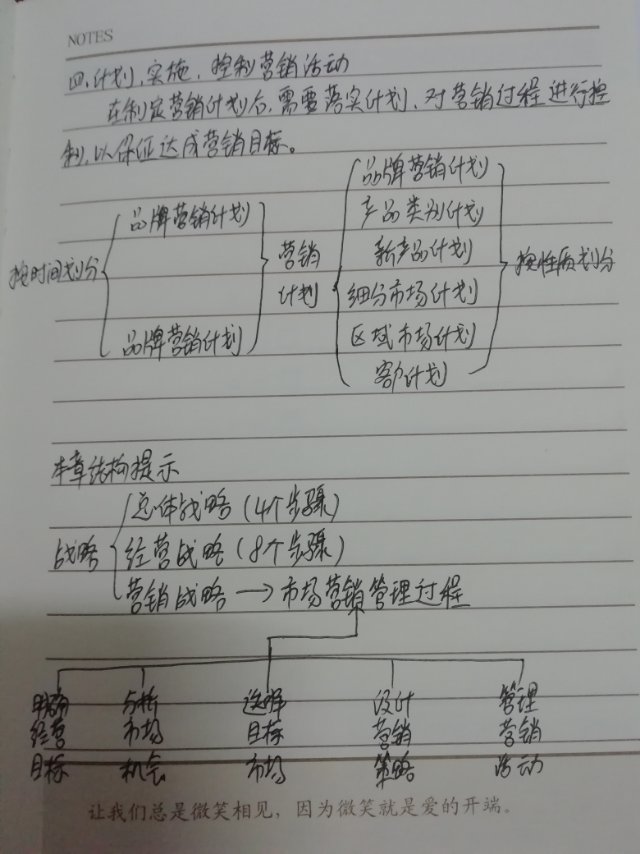 NOTES
四、计划、实施、控制营销活动
在制定营销计划后,需要落实计划、对营销过程进行控
制,以保证达成营销目标。
按时间划分
品牌营销计划
品牌营销计划
营销
计划
品牌营销计划
产品类别计划
新产品计划
细分市场计划
区域市场计划
客户计划
按性质划分
本章结构提示
战略
总体战略(4个步骤)
经营战略(8个步骤)
营销战略→市场营销管理过程
明确 分析 选择 设计 管理
经营 市场 目标 营销 营销
目标 机会 市场 策略 活动
让我们总是微笑相见,因为微笑就是爱的开端。